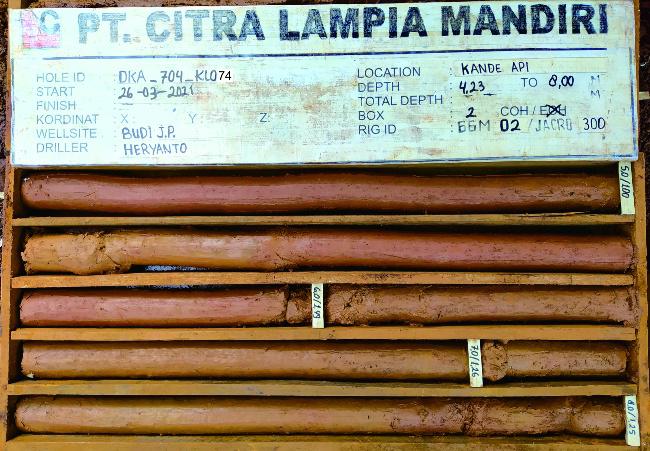 PT. CITRA LAMPIA MANDIRI
HOLE ID : DKA_704_KL074
START : 26-03-2021
FINISH :
KORDINAT X : Y : Z :
WELLSITE : BUDI J.P.
DRILLER : HERYANTO
LOCATION : KANDE API
DEPTH : 4,23 TO 8,00 M
TOTAL DEPTH : M
BOX : 2 COH / EOH
RIG ID : BBM 02 / JACRO 300
5.0/100
6.0/145
7.0/1.26
8.0/1.25